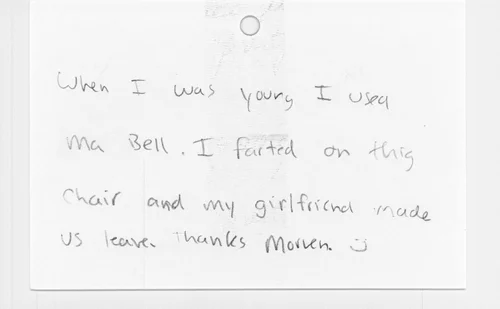 When I was young I used
Ma Bell. I farted on this
chair and my girlfriend made
us leave. Thanks Morven. :)